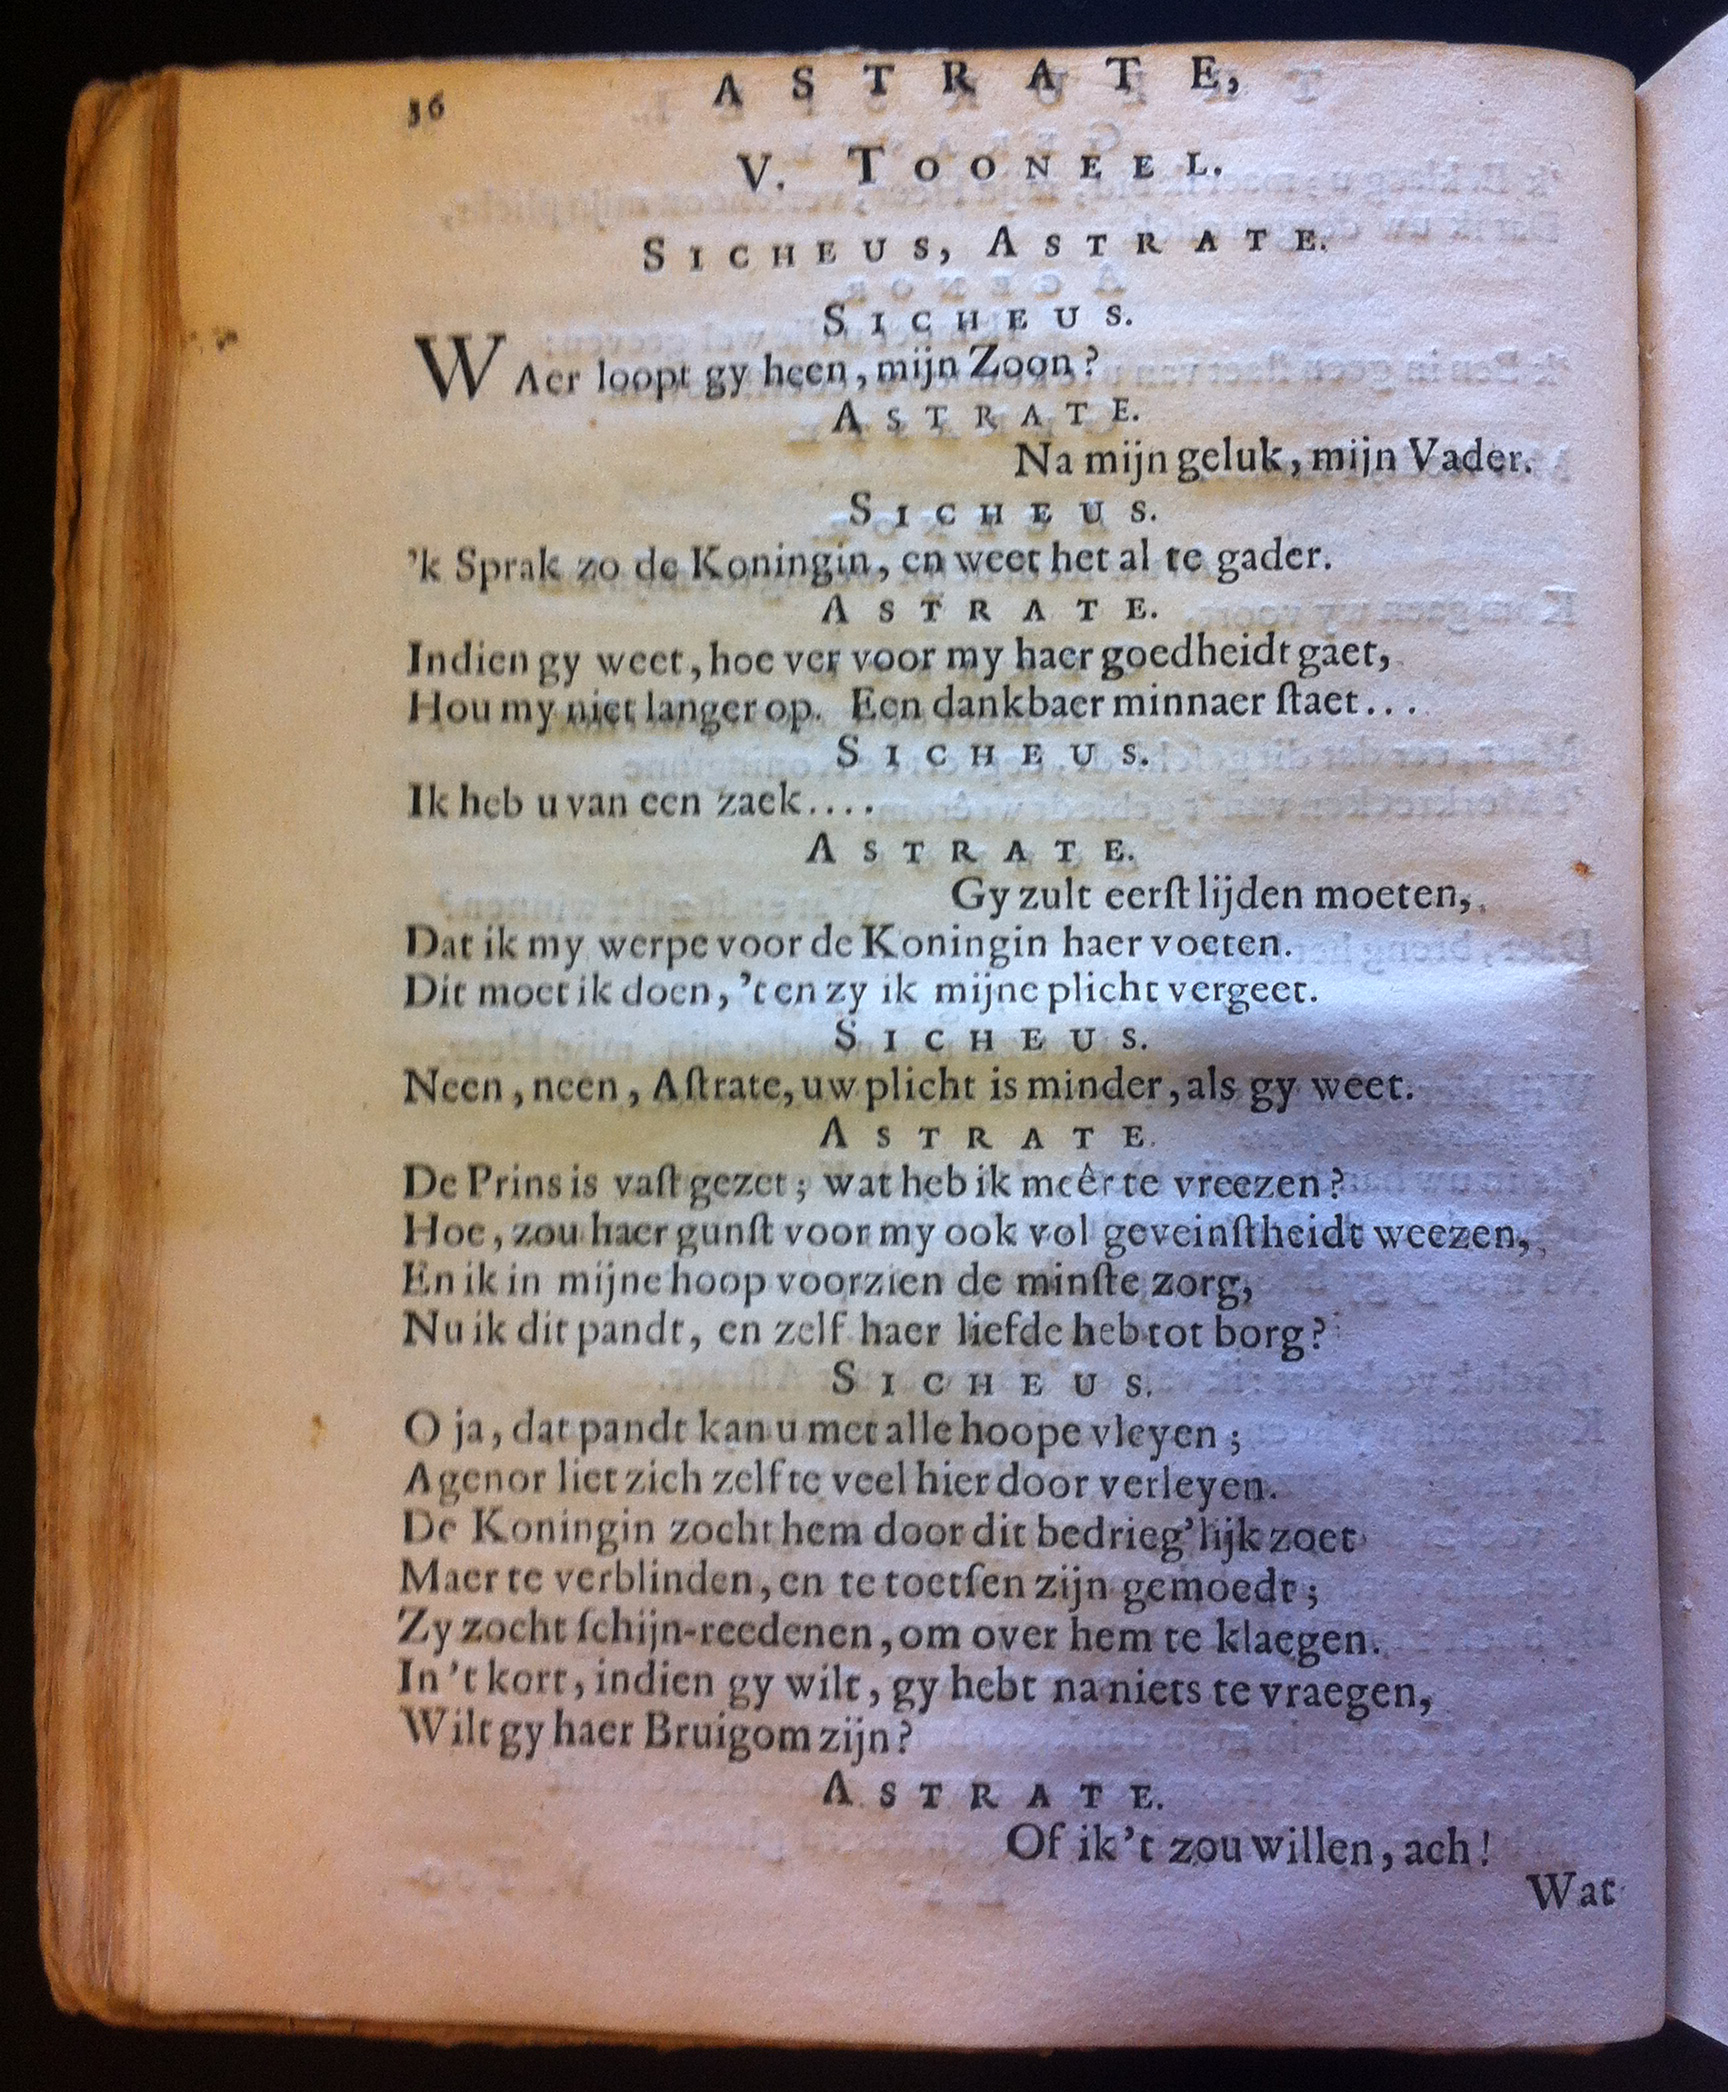 36 ASTRATE,
V. TOONEEL.
SICHEUS, ASTRATE.
SICHEUS.
WAer loopt gy heen, mijn Zoon?
ASTRATE.
Na mijn geluk, mijn Vader.
SICHEUS.
'k Sprak zo de Koningin, en weet het al te gader.
ASTRATE.
Indien gy weet, hoe ver voor my haer goedheidt gaet,
Hou my niet langer op. Een dankbaer minnaer ſtaet...
SICHEUS.
Ik heb u van een zaek....
ASTRATE.
Gy zult eerſt lijden moeten,
Dat ik my werpe voor de Koningin haer voeten.
Dit moet ik doen, 't en zy ik mijne plicht vergeet.
SICHEUS.
Neen, neen, Aſtrate, uw plicht is minder, als gy weet.
ASTRATE.
De Prins is vaſt gezet; wat heb ik meêr te vreezen?
Hoe, zou haer gunſt voor my ook vol geveinſtheidt weezen,
En ik in mijne hoop voorzien de minſte zorg,
Nu ik dit pandt, en zelf haer liefde heb tot borg?
SICHEUS.
O ja, dat pandt kan u met alle hoope vleyen;
Agenor liet zich zelf te veel hier door verleyen.
De Koningin zocht hem door dit bedrieg'lijk zoet
Maer te verblinden, en te toetſen zijn gemoedt;
Zy zocht ſchijn-reedenen, om over hem te klaegen.
In 't kort, indien gy wilt, gy hebt na niets te vraegen,
Wilt gy haer Bruigom zijn?
ASTRATE.
Of ik 't zou willen, ach!
Wat